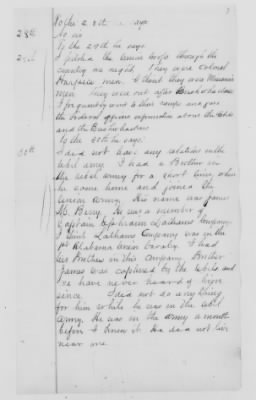 To the 28th he says
28th No sir
To the 29th he says
29th I piloted the Union troops through the
country one night. They were Colonel
men. I think they were Missouri
men. They were out after Bushwhackers
I frequently went to their camps and gave
the Federal officers information about the Rebs
and the Bushwhackers
To the 30th he says
30th I did not have any relation in the
Rebel army. I had a Brother in
the rebel army for a short time when
he came home and joined the
Union Army. His name was James
M. Berry. He was a member of
Captain Ephraim Lathams Company
I think Lathams Company was in the
1st Alabama Union Cavalry. I had
two Brothers in this company. Brother
James was captured by the Rebs and
I've have never heard of him
since. I did not do any thing
for him while he was in the rebel
army. He was in the army a month
before I knew it. He did not live
near me